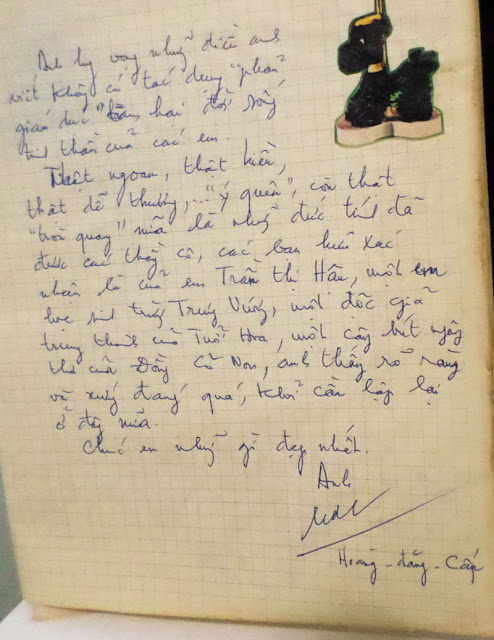 Anh hy vọng những điều anh
viết không có tác dụng "phản
giáo dục" làm hại đời sống
tinh thần của các em.
Thật ngoan, thật hiền,
thật dễ thương,... "ý quên", còn thật
"tròn quay" nữa là những đức tính đã
được các thầy cô, các bạn hữu xác
nhận là của em Trần thị Hâu, một em
học sinh trường Trưng Vương, một độc giả
trung thành của Tuổi Hoa, một cây bút ngây
thơ của Đồng Cỏ Non, anh thấy rõ ràng
và xứng đáng quá, khỏi cần lập lại
ở đây nữa.
Chúc em những gì đẹp nhất.
Anh
Hoàng - đăng - Cấp